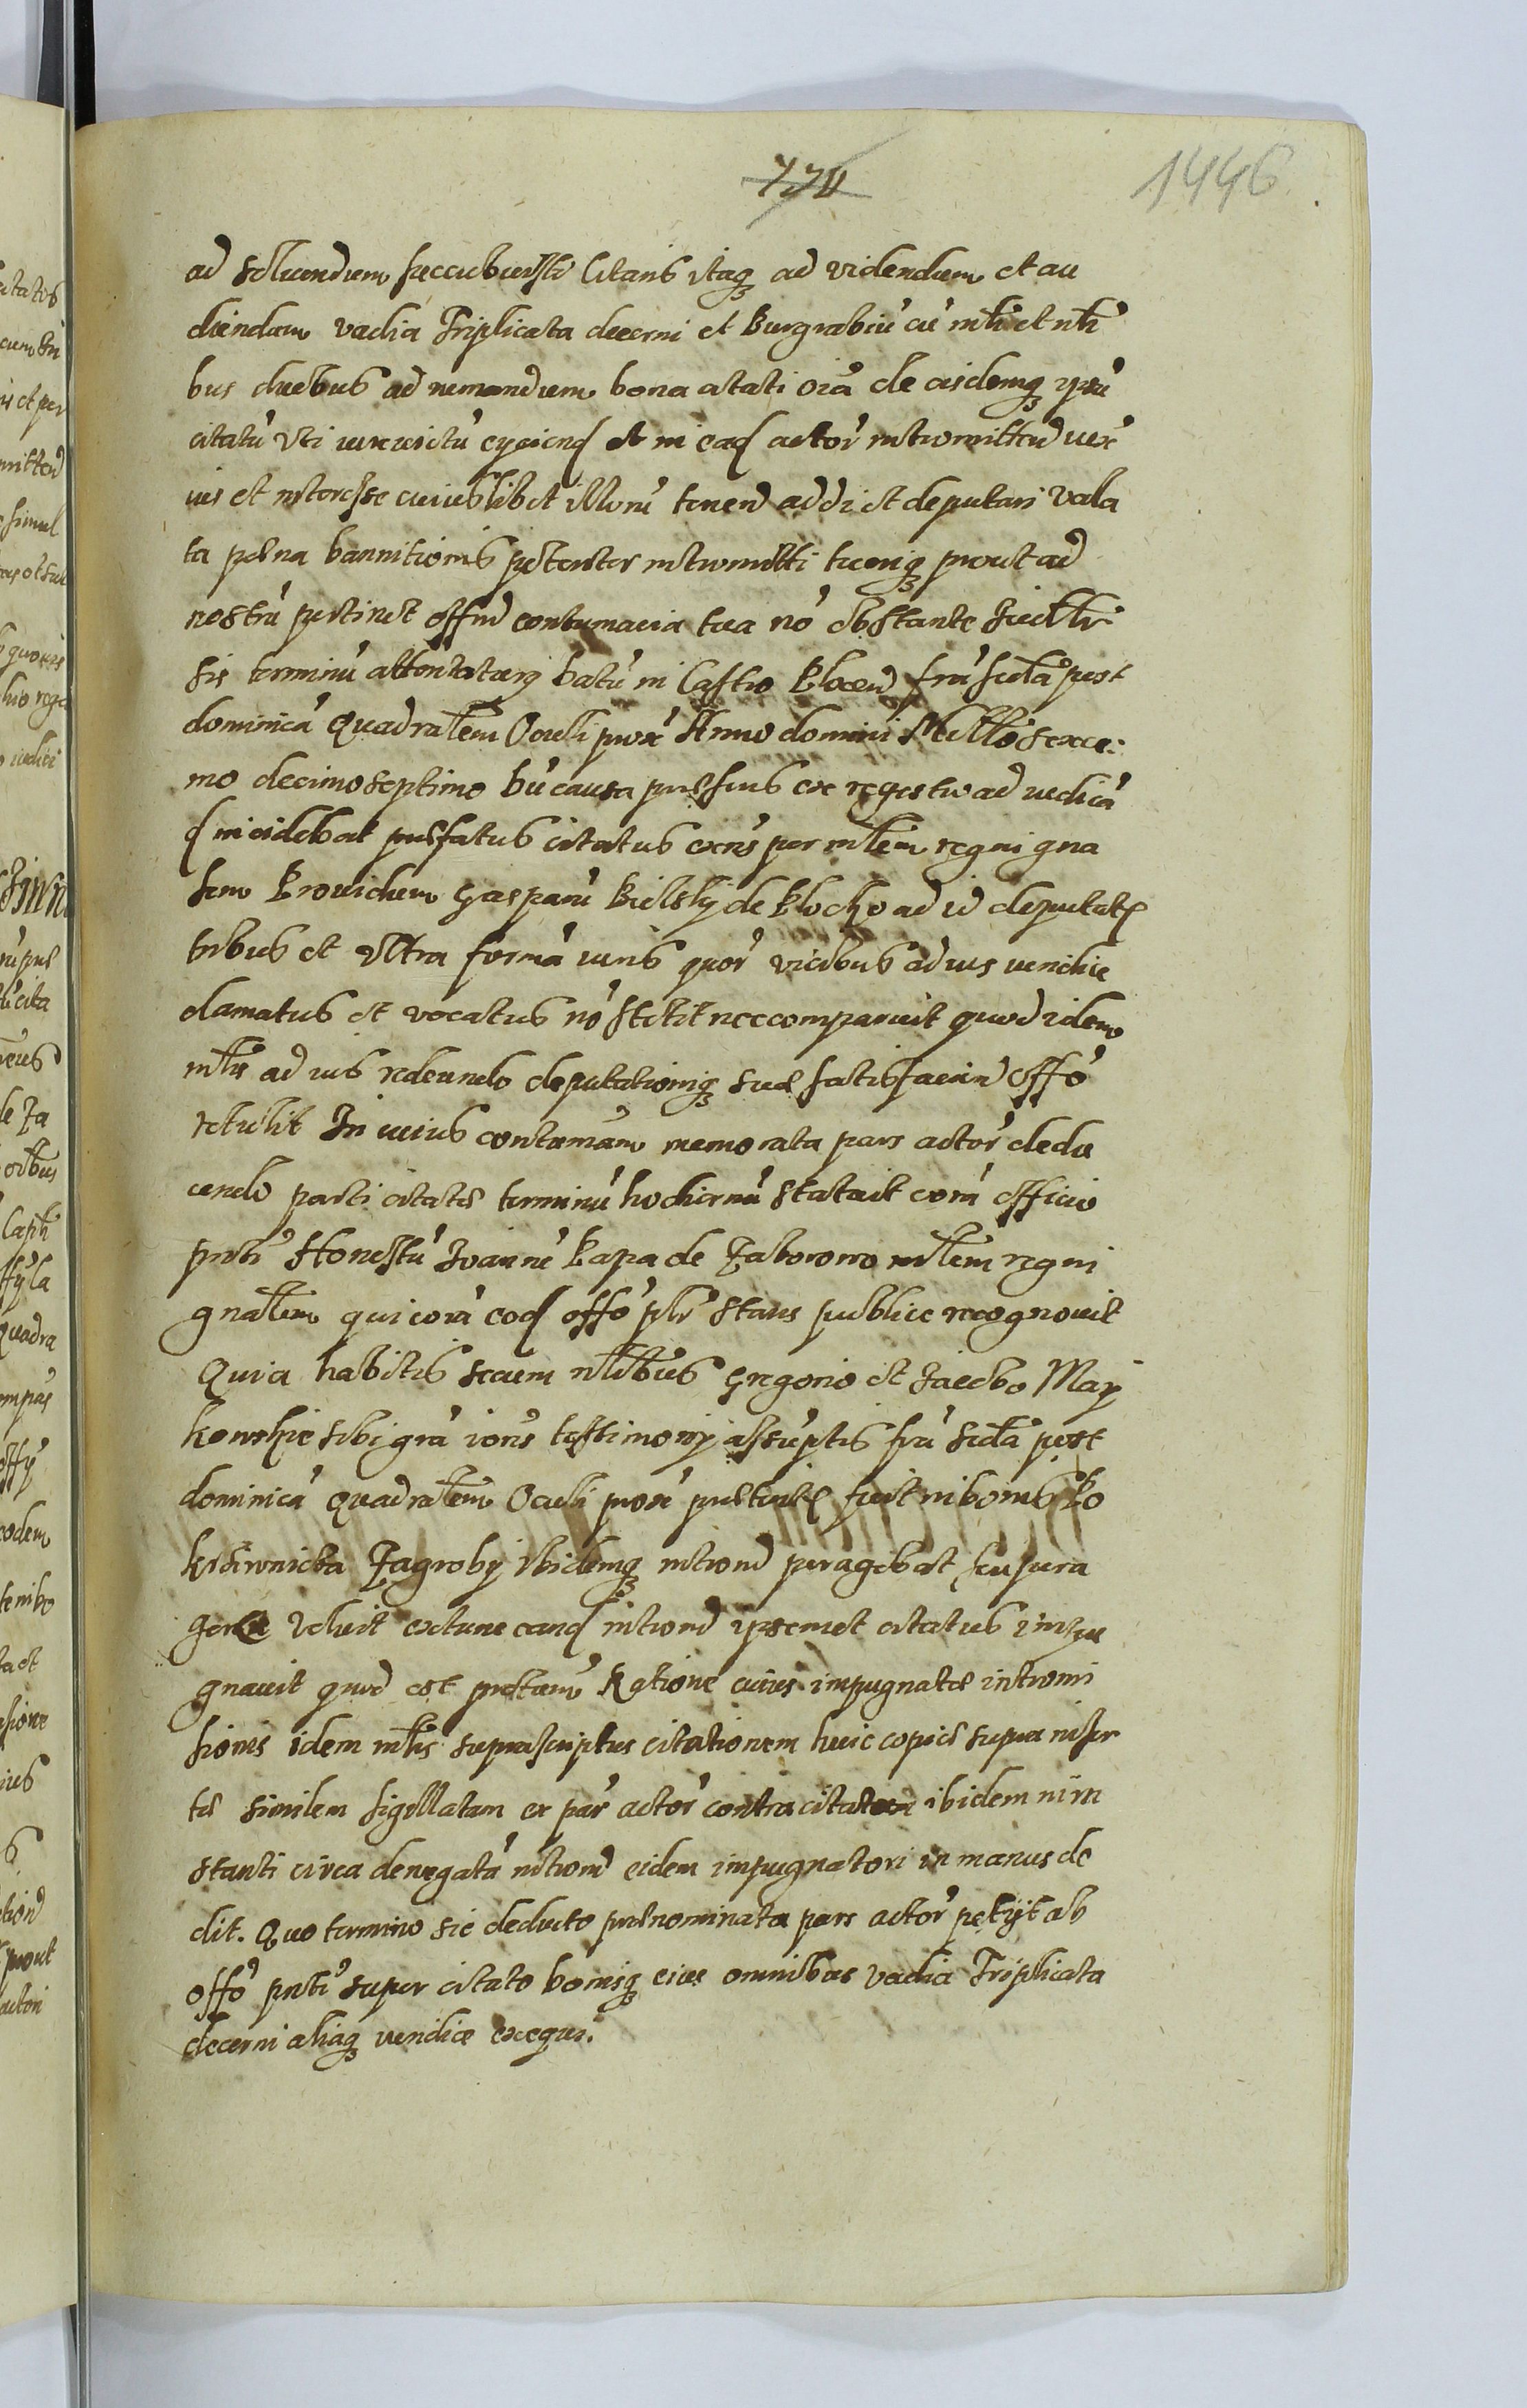 770
1446
ad soluendum succubuisti Citaris itaq ad videndum et au
diendum vadia Triplicata decerni et Burgrabiu cu mli et nli
bus duobus ad rumandum bona citati oia de eisdemq ipsu
citatu vti iure victu eyciend et in ead actor intromittend iux
ius et interesse cuiuslibet illoru tenend addi et deputari Vala
ta poena bannitionis potenter intromitti tuenq prout ad
nostru pertinet offm contumacia tua no obstante Iudlr
sis terminu attentatarq Datu in Castro Klocen fra scda post
dominica Quadralem Oculi prox Anno domini Millo sexce:
mo decimo septimo Du causa pnsens ex regestro ad iudica
d incidebat praefatus citatus exns per mlem regni gna
lem Providum Gasparu Bielsky de Klocko ad id deputat
tribus et vltra forma iuris quor vicibus ad ius iundice
clamatus et vocatus no stetit nec comparuit quod idem
mlis ad ius redeundo deputationiq suae satisfaciend offo
retulit In cuius contumam memorata pars actor dedu
cendo parti citatae terminu hodiernu statuit cora officio
pnti Honestu Ioanne Kapa de Zaborowo mlem regni
gnalem qui cora eod offo plr stans publice recognouit
Quia habitis secum nlibus Gregorio et Iacobo May
kowskie sibi gra ions testimonij assuptis fra scda post
dominica Quadralem Oculi prox praeterit fuit in bonis Ko
Zagroby Ibidemq introm peragebat seu pera
gere voluit extunc eand introm ipsemet citatus impu
gnauit quod est protam Ratione cuius impugnatae intromi
sionis idem mlis suprascriptus citationem huic copiae supra inser
tae similem sigillatam ex par actor contra citatum ibidem nim
stanti circa denegata introm eidem impugnatori in manus de
dit. Quo termino sic deducto praenominata pars actor petijt ab
offo pnti super citato bonisq eius omnibus vadia Triplicata
decerni aliaq iundice exequi.